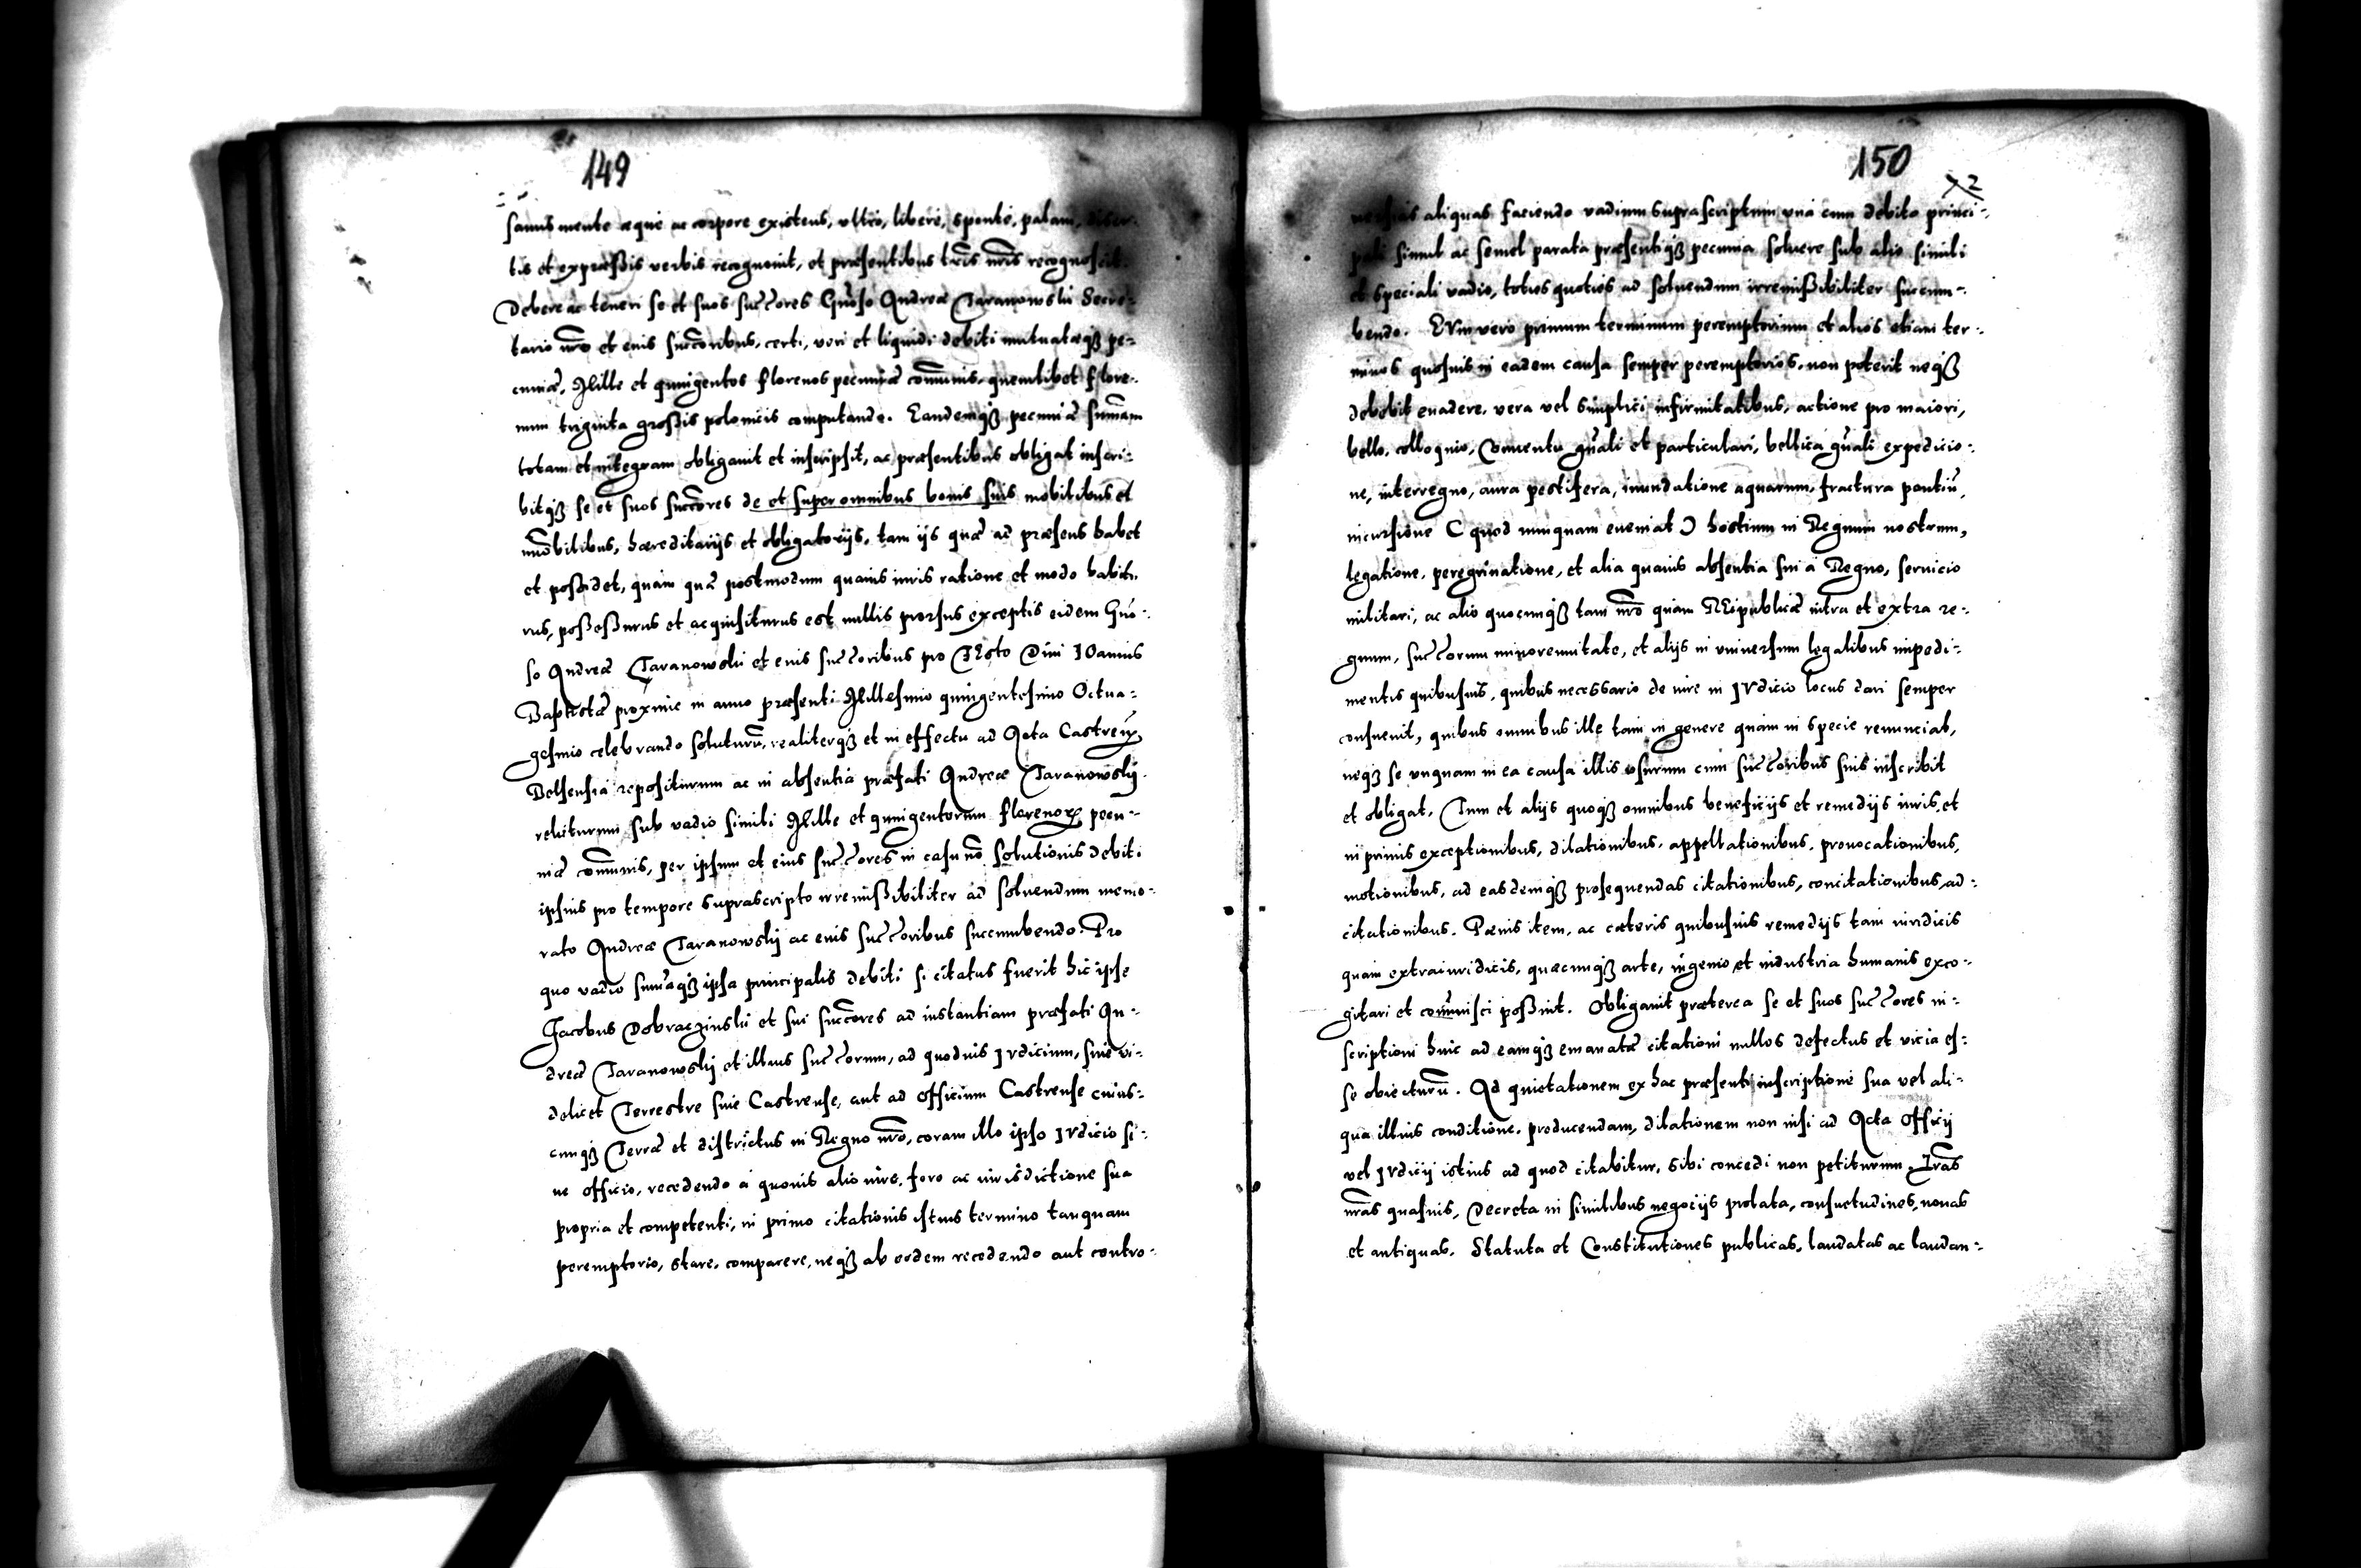 149
sanus mente æque ac corpore existens, ultro, libere, sponte, palam, diser-
tis et expressis verbis recognovit, et præsentibus lris nris recognoscit.
Debere ac teneri se et suos succores Gnoso Andreæ Taranowskii Secre-
tario nro et eius succoribus, certi, veri et liquidi debiti mutuatæq3 pe-
cuniæ, Mille et quingentos florenos pecuniæ communis, quemlibet flore-
num triginta grossis polonicis computando. Eandemq3 pecuniæ summam
totam et integram obligavit et inscripsit, ac præsentibus obligat inscri-
bitq3 se et suos succores de et super omnibus bonis suis mobilibus et
immobilibus, hæreditariis et obligatoriis, tam iis quæ ad præsens habet
et possidet, quam quæ postmodum quavis iuris ratione et modo habitu-
rus, possessurus et acquisiturus est nullis prorsus exceptis eidem Gno-
so Andreæ Taranowskii et eius succoribus pro festo Divi Ioannis
Baptistæ proxime in anno præsenti Millesimo quingentesimo Octua-
gesimo celebrando soluturum, realiterq3 et in effectu ad Acta Castren.
Belsensia repositurum ac in absentia præfati Andreæ Taranowskij
reliturum sub vadio simili Mille et quingentorum florenorum pecu-
niæ communis, per ipsum et eius succores in casu non solutionis debiti
ipsius pro tempore suprascripto irremissibiliter ad solvendum memo-
rato Andreæ Taranowskij ac eius succoribus succumbendo. Pro
quo vadio summaq3 ipsa principalis debiti si citatus fuerit hic ipse
Jacobus Dobraczinskii et sui succores ad instantiam præfati An-
dreæ Taranowskij et illius succorum, ad quodvis Iudicium, sive vi-
delicet Terrestre sive Castrense, aut ad officium Castrense cuius-
cunq3 Terræ et districtus in Regno nro, coram illo ipso Iudicio si-
ve officio, recedendo a quovis alio iure, foro ac iurisdictione sua
propria et competenti, in primo citationis istius termino tanquam
peremptorio, stare, comparere, neq3 ab eodem recedendo aut contro-
150
X2
aliquas faciendo vadium suprascriptum una cum debito princi-
pali simul ac semel parata præsentiq3 pecunia solvere sub alio simili
et speciali vadio, toties quoties ad solvendum irremissibiliter succum-
bendo. Eum vero primum terminum peremptorium et alios etiam ter-
minos quosvis in eadem causa semper peremptorios, non poterit neq3
debebit evadere, vera vel simplici infirmitatibus, actione pro maiori,
bello, colloquio, Conventu gnali et particulari, bellica gnali expeditio-
ne, interregno, aura pestifera, inundatione aquarum, fractura pontiu,
incursione ( quod nunquam eveniat ) hostium in Regnum nostrum,
legatione, peregrinatione, et alia quavis absentia sui a Regno, servicio
militari, ac alio quocunq3 tam nro quam REipublicæ intra et extra re-
gnum, succorum minorennitate, et aliis in universum legalibus impedi-
mentis quibusvis, quibus necessario de iure in Iudicio locus dari semper
consuevit, quibus omnibus ille tam in genere quam in specie renunciat,
neq3 se unquam in ea causa illis usurum cum succoribus suis inscribit
et obligat, Tum et aliis quoq3 omnibus beneficiis et remediis iuris, et
in primis exceptionibus, dilationibus, appellationibus, provocationibus,
motionibus, ad easdemq3 prosequendas citationibus, concitationibus, ad-
citationibus. Pænis item, ac cæteris quibusvis remediis tam iuridicis
quam extraiuridicis, quæcunq3 arte, ingenio et industria humanis exco-
gitari et comminisci possint. Obligavit præterea se et suos succores in-
scriptioni huic ad eamq3 emanatæ citationi nullos defectus et vicia es-
se obiecturum. Ad quietationem ex hac præsenti inscriptione sua vel ali-
qua illius conditione, producendam, dilationem non nisi ad Acta officij
vel Iudicij istius ad quod citabitur, sibi concedi non petiturum. Lras
nras quasvis, Decreta in similibus negociis prolata, consuetudines, novas
et antiquas, Statuta et Constitutiones publicas, laudatas ac laudan-